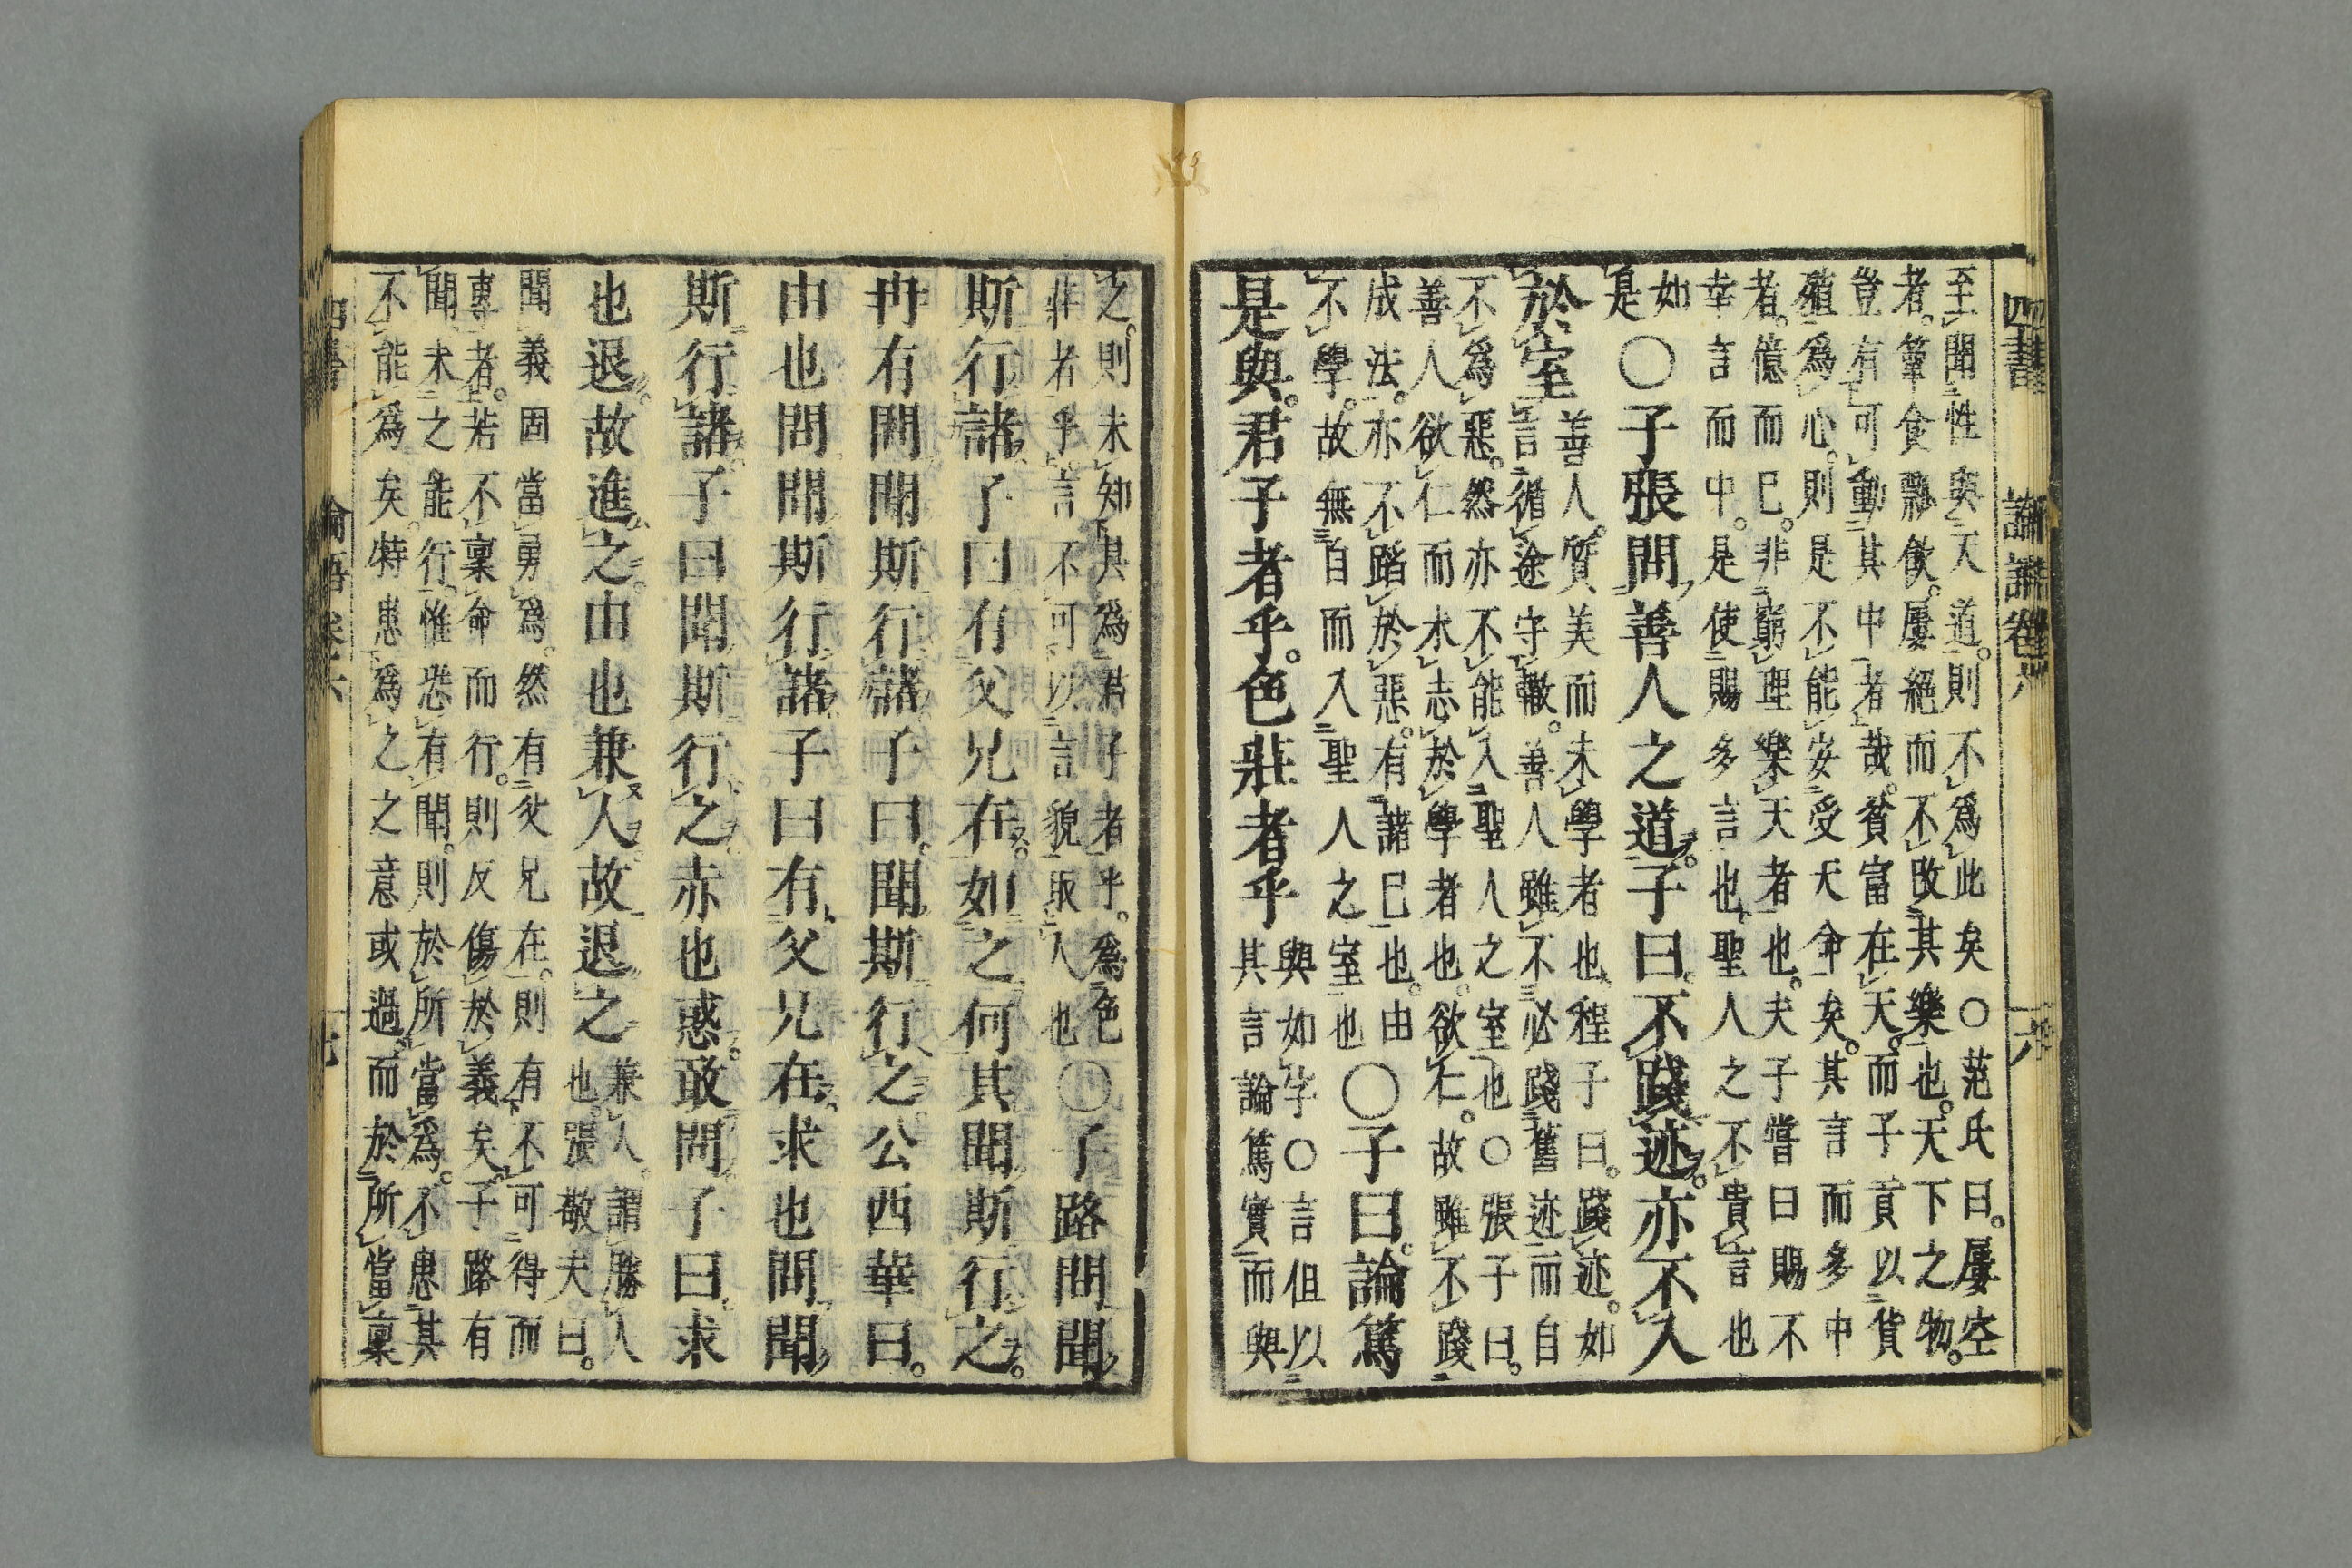 四書 論語卷六 十六
至聞性與天道。則不爲此矣○范氏曰。屢空
者。簞食瓢飲。屢絕而不改其樂也。天下之物。
豈有可動其中者哉。貧富在天。而子貢以貨
殖爲心。則是不能安受天命矣。其言而多中
者。億而已。非窮理樂天者也。夫子嘗曰賜不
幸言而中。是使賜多言也。聖人之不貴言也
如
是
○子張問善人之道。子曰。不踐迹。亦不入
於室
善人。質美而未學者也。程子曰。踐迹。如
言循途守轍。善人雖不必踐舊迹而自
不爲惡。然亦不能入聖人之室也○張子曰。
善人欲仁而未志於學者也。欲仁。故雖不踐
成法。亦不蹈於惡。有諸已也。由
不學。故無自而入聖人之室也
○子曰。論篤
是與。君子者乎。色莊者乎
與如字○言但以
其言論篤實而與
之。則未知其爲君子者乎。爲色
莊者乎。言不可以言貌取人也
○子路問聞
斯行諸。子曰有父兄在。如之何其聞斯行之。
冉有問聞斯行諸子曰。聞斯行之。公西華曰。
由也問聞斯行諸。子曰有父兄在。求也問聞
斯行諸。子曰聞斯行之。赤也惑。敢問子曰。求
也退。故進之。由也兼人。故退之
兼人。謂勝人
也。張敬夫。曰。
聞義固當勇爲。然有父兄在。則有不可得而
專者。若不稟命而行。則反傷於義矣。子路有
聞未之能行。惟恐有聞。則於所當爲。不患其
不能爲矣。特患爲之之意或過。而於所當稟
四書 論語卷六 十七